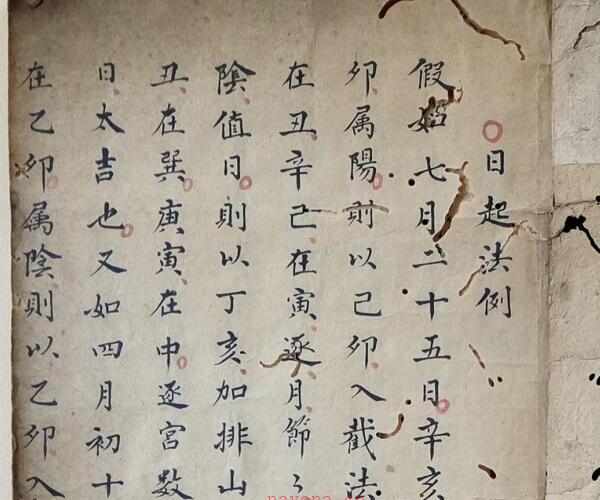 日起法例
假如七月二十五日辛亥
卯属陽則以己卯入截法
在丑辛己在寅逐月節々
陰值日則以丁亥加排山
丑在巽庚寅在中逐宮数
日太吉也又如四月初十
在乙卯属陰則以乙卯入